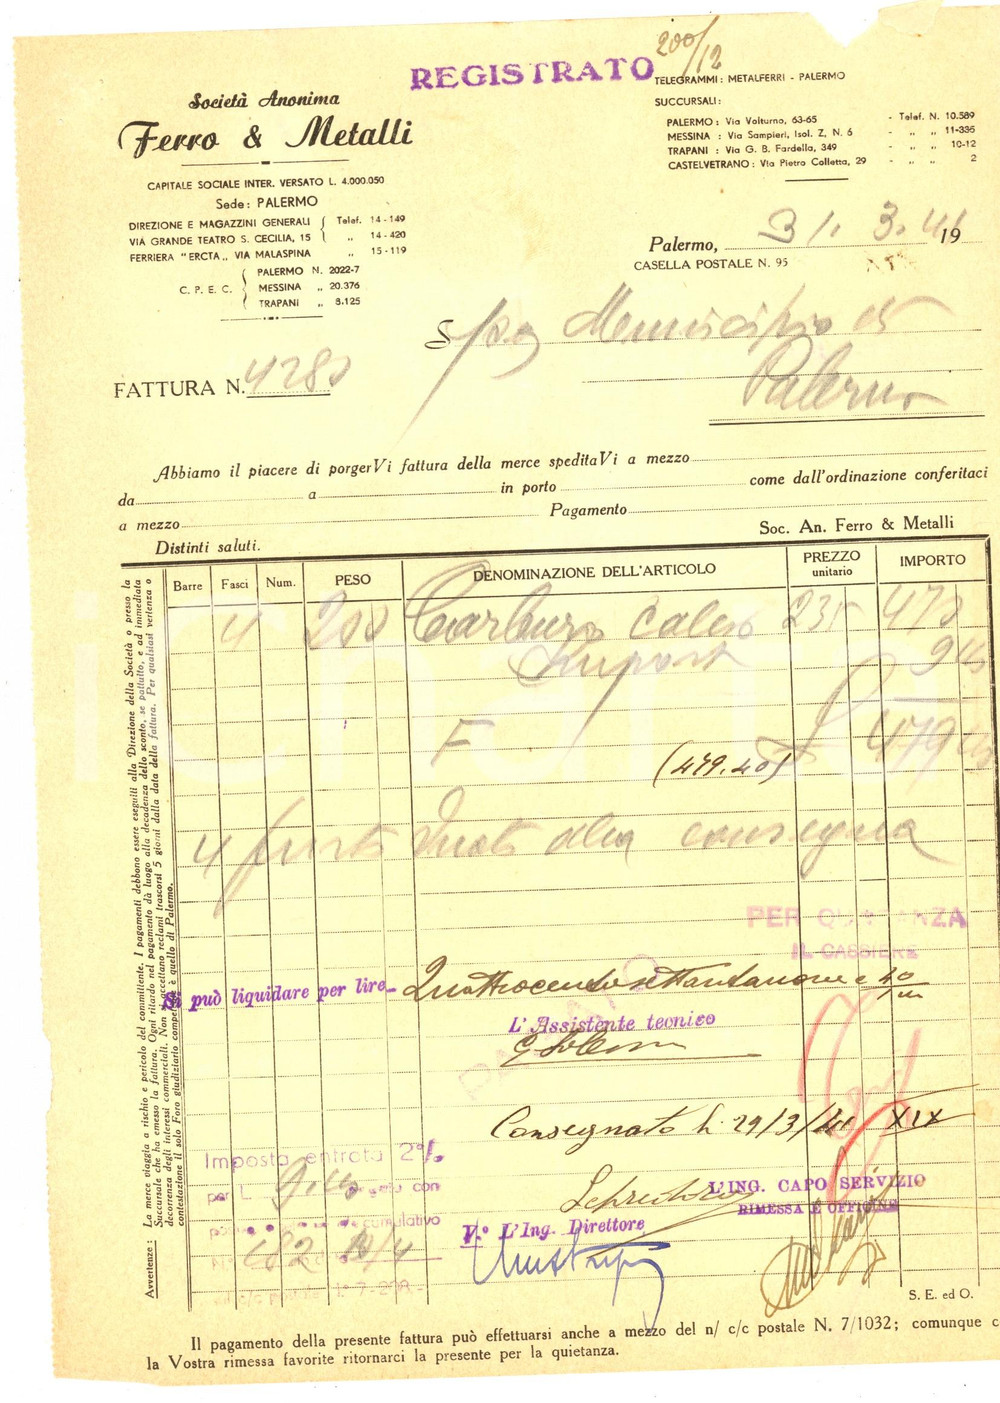 REGISTRATO
200/12
Società Anonima
Ferro & Metalli
CAPITALE SOCIALE INTER. VERSATO L. 4.000.050
Sede: PALERMO
DIREZIONE E MAGAZZINI GENERALI Telef. 14-149
VIA GRANDE TEATRO S. CECILIA, 15 „ 14-420
FERRIERA "ERCTA„ VIA MALASPINA „ 15-119
C. P. E. C.
PALERMO N. 2022-7
MESSINA „ 20.376
TRAPANI „ 8.125
TELEGRAMMI: METALFERRI - PALERMO
SUCCURSALI:
PALERMO: Via Volturno, 63-65 - Telef. N. 10.589
MESSINA: Via Sampieri, Isol. Z, N. 6 - „ „ 11-336
TRAPANI: Via G. B. Fardella, 349 - „ „ 10-12
CASTELVETRANO: Via Pietro Colletta, 29 - „ „ 2
Palermo, 31. 3. 41 19
CASELLA POSTALE N. 95
Municipio di
Palermo
FATTURA N. 4280
Abbiamo il piacere di porgerVi fattura della merce speditaVi a mezzo
da a in porto come dall'ordinazione conferitaci
a mezzo Pagamento
Distinti saluti.
Soc. An. Ferro & Metalli
Barre Fasci Num. PESO DENOMINAZIONE DELL'ARTICOLO PREZZO unitario IMPORTO
4 200 Carburo Calcio 235 470
9.40
F 479.40
(479.40)
4 fusti vuoti alla consegna
PER QUIETANZA
IL CASSIERE
Si può liquidare per lire Quattrocentosettantanove e 40/
L'Assistente tecnico
Consegnato li 29/3/41 XIX
L'ING. CAPO SERVIZIO
RIMESSA E OFFICINE
V.° L'Ing. Direttore
Imposta entrata 2%
per L. 9.40 con
cumulativo
S. E. ed O.
Avvertenze: La merce viaggia a rischio e pericolo del committente. I pagamenti debbono essere eseguiti alla Direzione della Società o presso la
Succursale che ha emesso la fattura. Ogni ritardo nel pagamento dà luogo alla decadenza dello sconto, se pattuito, e ad immediata
decorrenza degli interessi commerciali. Non si accettano reclami trascorsi 5 giorni dalla data della fattura. Per qualsiasi vertenza o
contestazione il solo Foro giudiziario competente è quello di Palermo.
Il pagamento della presente fattura può effettuarsi anche a mezzo del n/ c/c postale N. 7/1032; comunque c
la Vostra rimessa favorite ritornarci la presente per la quietanza.